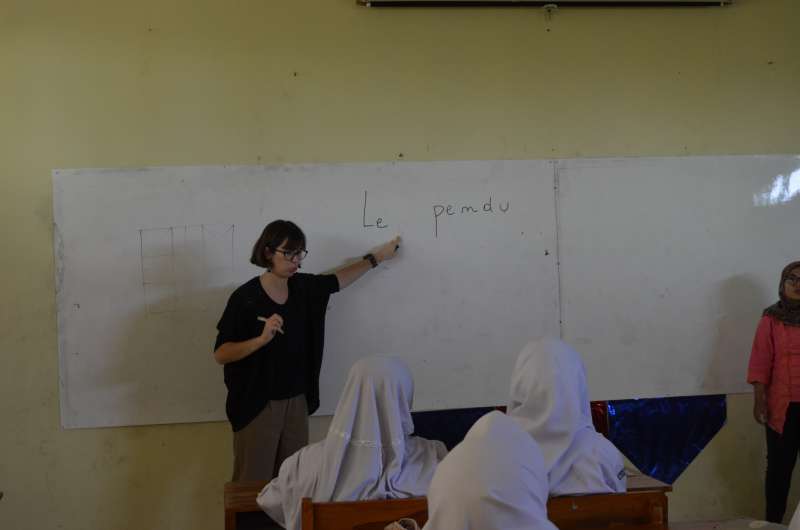 Le pemdu